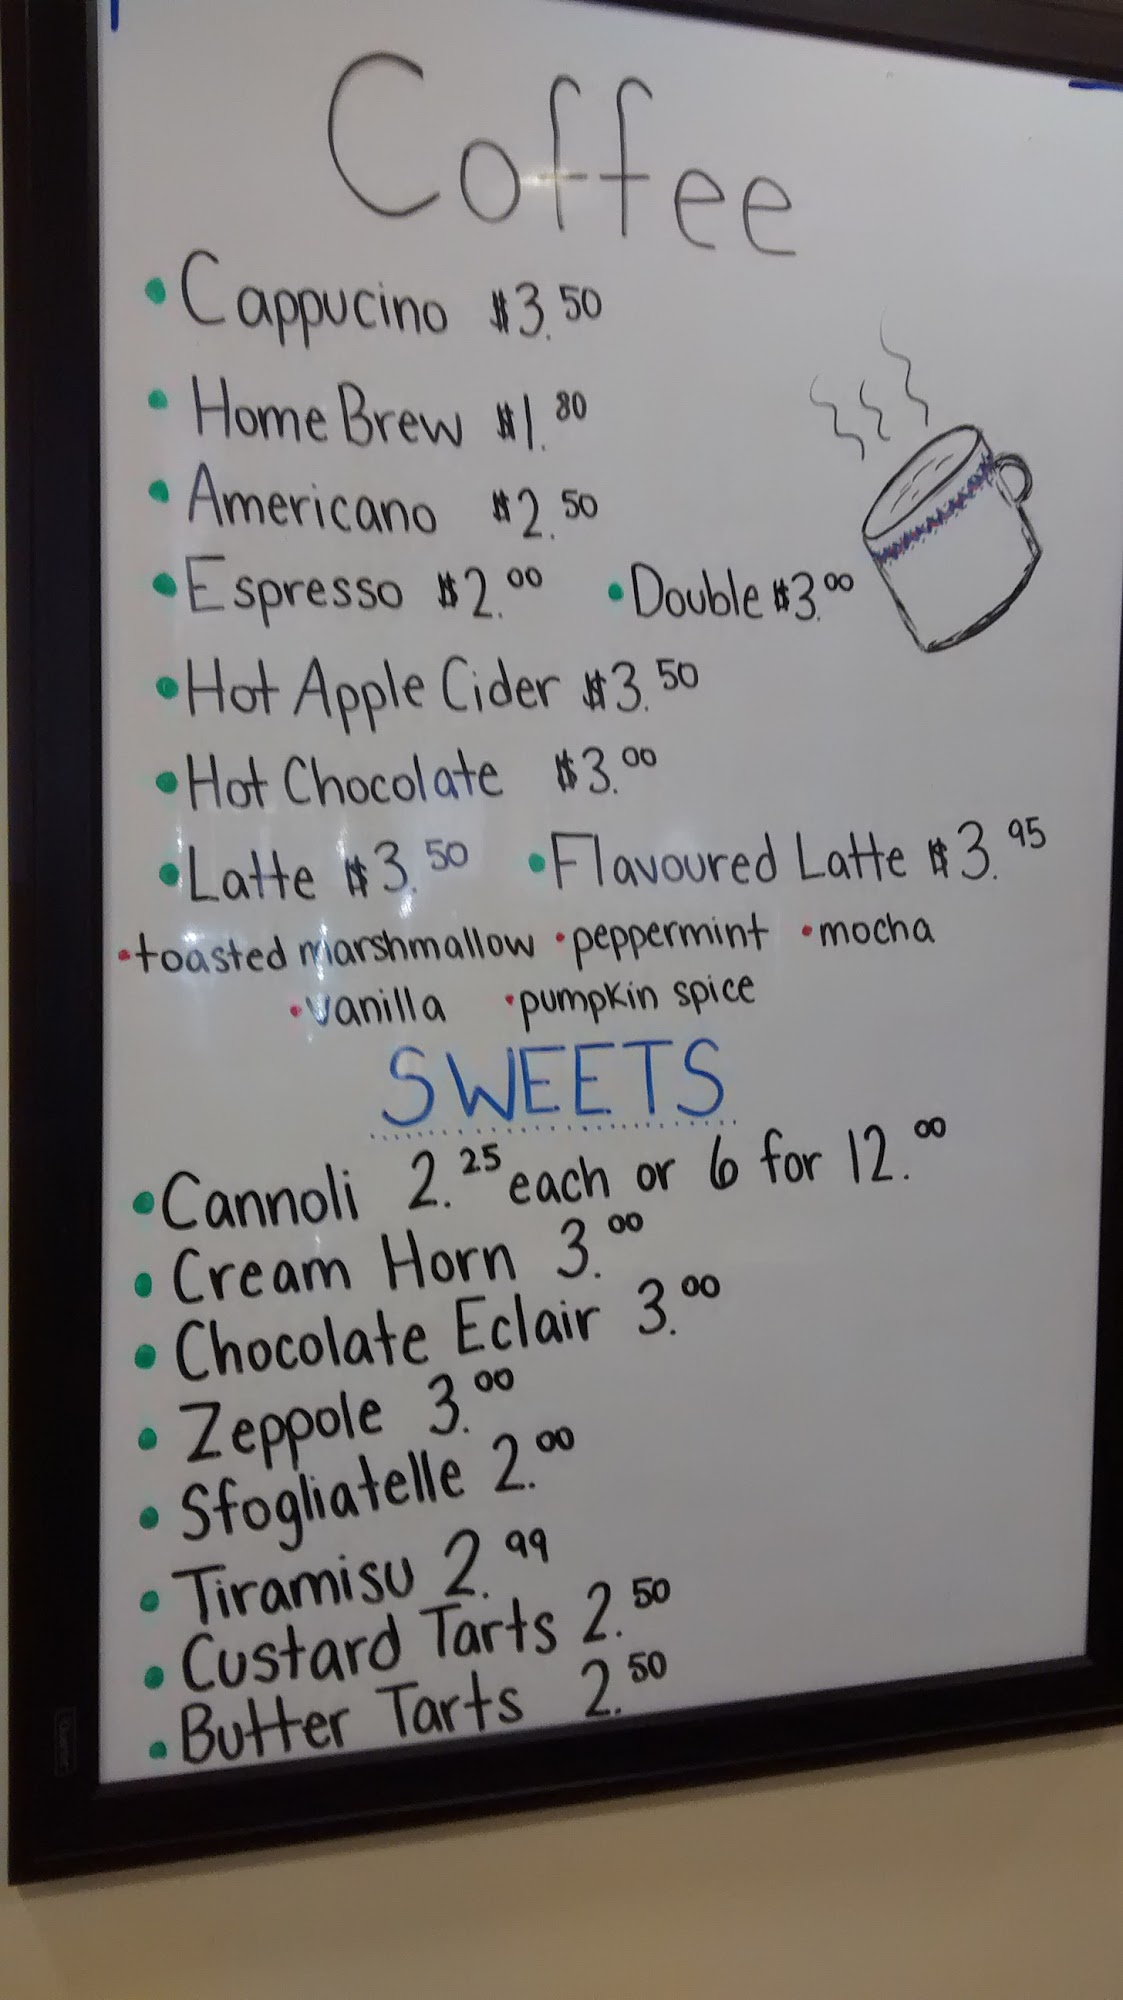 Coffee
• Cappucino $3.50
• Home Brew $1.80
• Americano $2.50
• Espresso $2.00 • Double $3.00
• Hot Apple Cider $3.50
• Hot Chocolate $3.00
• Latte $3.50 • Flavoured Latte $3.95
• toasted marshmallow • peppermint • mocha
• vanilla • pumpkin spice
SWEETS
• Cannoli 2.25 each or 6 for 12.00
• Cream Horn 3.00
• Chocolate Eclair 3.00
• Zeppole 3.00
• Sfogliatelle 2.00
• Tiramisu 2.99
• Custard Tarts 2.50
• Butter Tarts 2.50